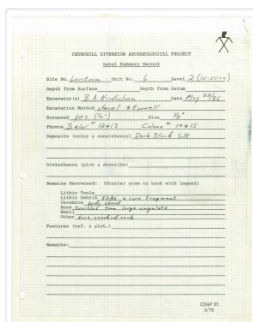 CHURCHILL DIVERSION ARCHAEOLOGICAL PROJECT
Level Summary Record
Site No. Unit No. 6 Level 2 (10-20cm)
Depth from Surface Depth from Datum
Excavator(s) B.A. Nicholson Date May
Excavation Method shovel & trowel
Screened yes (¼") Size ¼"
Photos B&W # Color #
Deposits (color & consistency) Dark Black Silt
Disturbance (pick & describe)
Remains Recovered: (Scatter plan on back with legend)
Lithic Tools
Lithic Debris flake & core fragment
Ceramics body sherd
Bone from large ungulate
Shell
Other fire cracked rock
Features (ref. & plot.)
Remarks:
CDAP 35
5/70